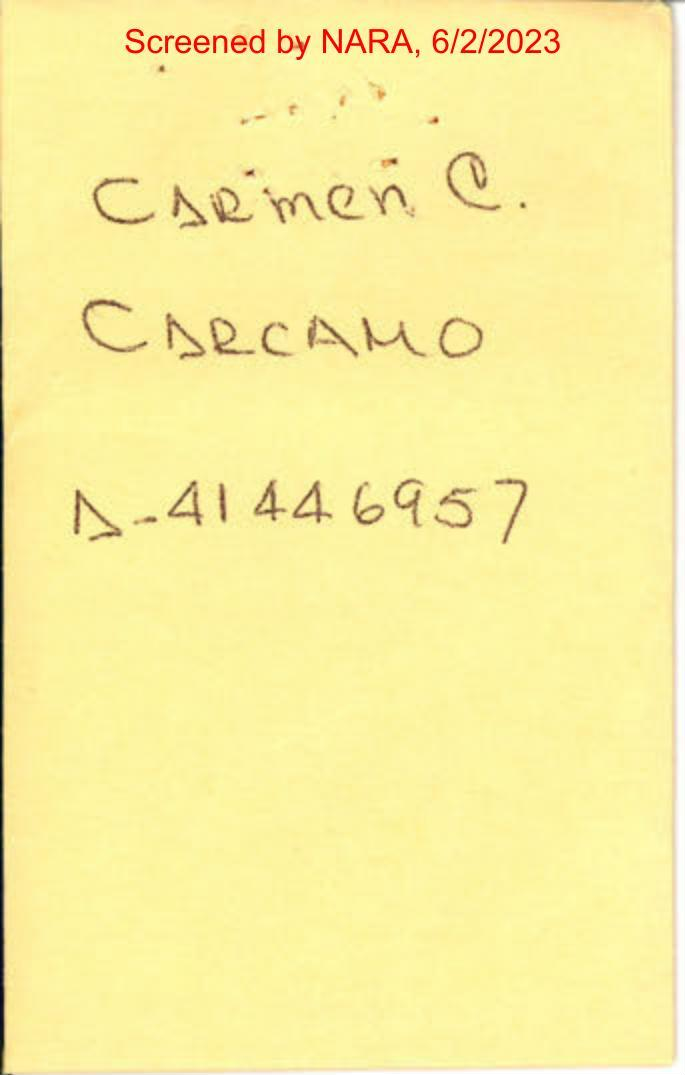 Screened by NARA, 6/2/2023
CARmen C.
CARCAMO
A-41446957